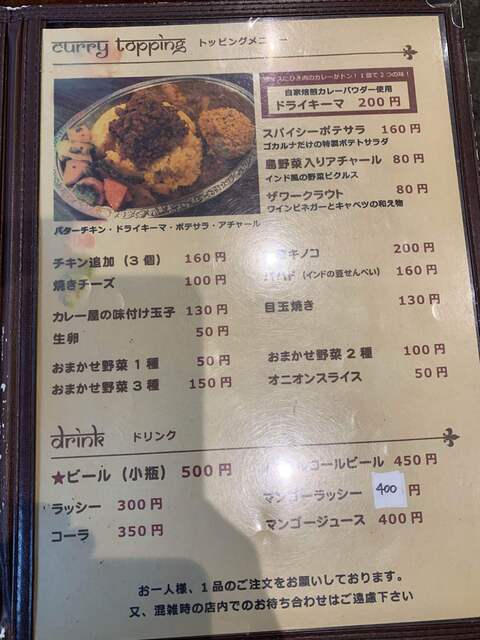 curry topping トッピングメニュー
スにひき肉のカレーがドン!1皿で2つの味!
自家焙煎カレーパウダー使用
ドライキーマ 200円
スパイシーポテサラ 160円
ゴカルナだけの特製ポテトサラダ
島野菜入りアチャール 80円
インド風の野菜ピクルス
ザワークラウト 80円
ワインビネガーとキャベツの和え物
バターチキン・ドライキーマ・ポテサラ・アチャール
チキン追加(3個) 160円
焼きチーズ 100円
カレー屋の味付け玉子 130円
生卵 50円
おまかせ野菜1種 50円
おまかせ野菜3種 150円
キノコ 200円
パパド(インドの豆せんべい) 160円
目玉焼き 130円
おまかせ野菜2種 100円
オニオンスライス 50円
drink ドリンク
★ビール(小瓶) 500円
ラッシー 300円
コーラ 350円
ルコールビール 450円
マンゴーラッシー 400円
マンゴージュース 400円
お一人様、1品のご注文をお願いしております。
又、混雑時の店内でのお待ち合わせはご遠慮下さい